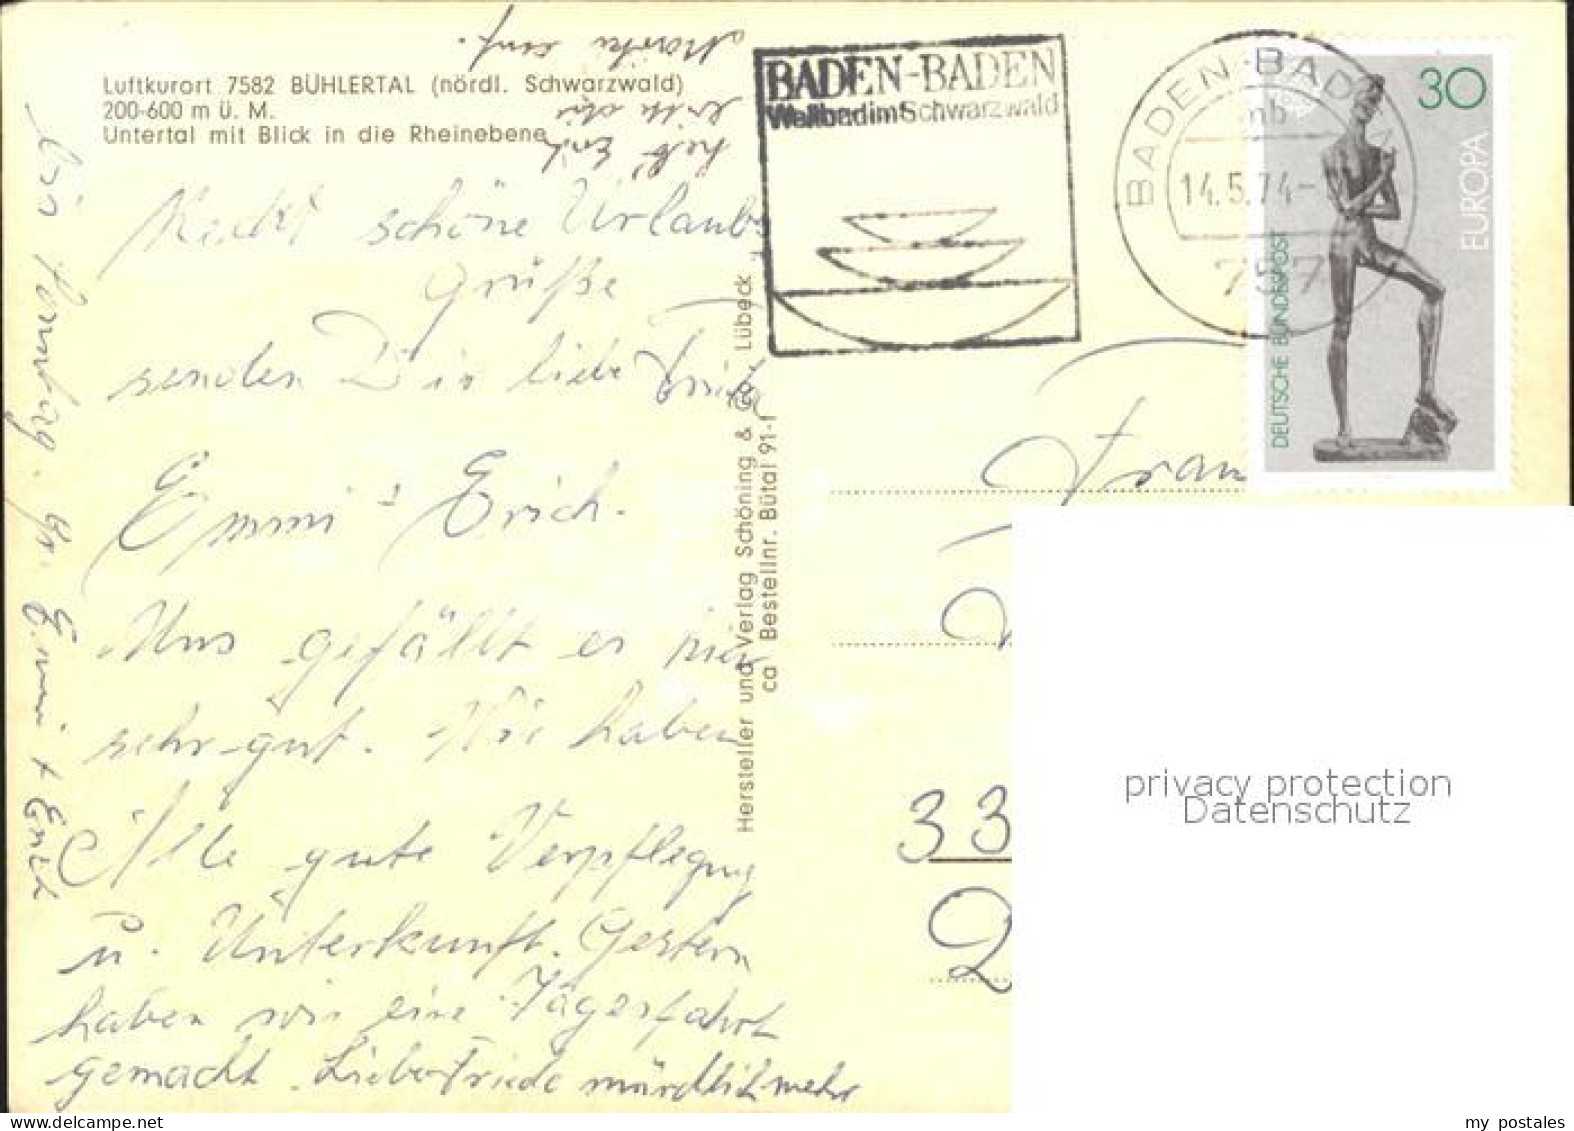 Luftkurort 7582 BÜHLERTAL (nördl. Schwarzwald)
200-600 m ü. M.
Untertal mit Blick in die Rheinebene
Recht schöne Urlaubs
grüße
senden Dir liebe
Emmi + Erich.
Uns gefällt es hier
sehr gut. Wir haben
Alle gute Verpflegung
u. Unterkunft. Gestern
haben wir eine Tagesfahrt
gemacht. Liebe Friede mündlich mehr
Bis Sonntag. Gr. Emmi + Erich
Hersteller und Verlag Schöning & Co., Lübeck
ca Bestellnr. Bütal 91-1
BADEN-BADEN
Weltbad im Schwarzwald
BADEN-BADEN
mb
14.5.74-
757
30
EUROPA
DEUTSCHE BUNDESPOST
Frau
33
privacy protection
Datenschutz
my postales